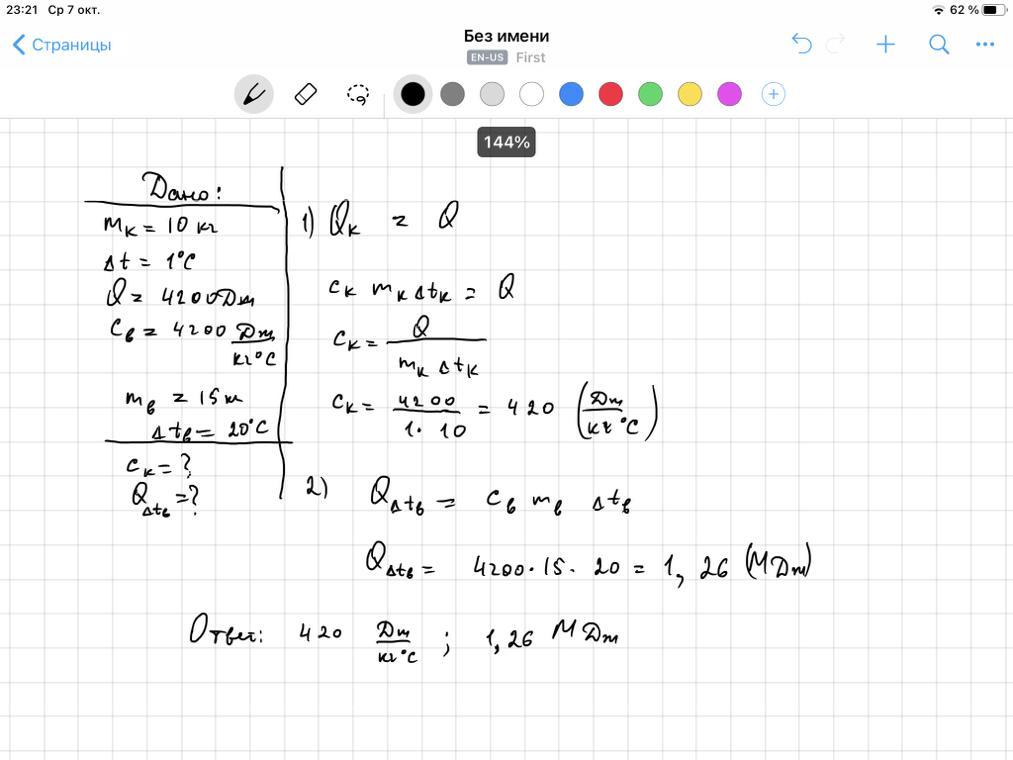 23:21 Ср 7 окт.
62 %
Страницы
Без имени
EN-US First
144%
Дано:
mк = 10 кг
Δt = 1°C
Q = 4200 Дж
cв = 4200 Дж/кг°C
mв = 15 кг
Δtв = 20°C
cк = ?
QΔtв = ?
1) Qк = Q
cк mк Δtк = Q
cк = Q/mк Δtк
cк = 4200/1·10 = 420 (Дж/кг°C)
2) QΔtв = cв mв Δtв
QΔtв = 4200·15·20 = 1,26 (МДж)
Ответ: 420 Дж/кг°C ; 1,26 МДж